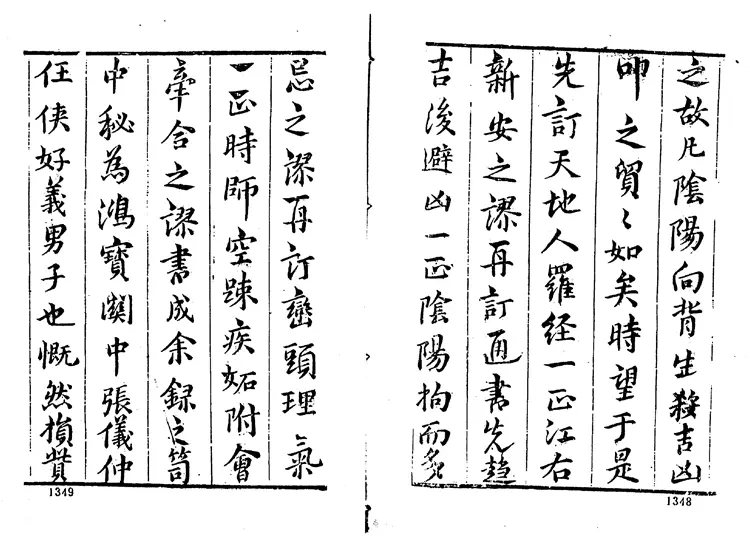 之故凡陰陽向背生殺吉凶
帥之貿〻如矣時望于是
先訂天地人羅经一正江右
新安之謬再訂通書先趋
吉後避凶一正陰陽拘而多
1348
忌之謬再訂巒頭理氣
一正時師空踈疾妬附會
牽合之謬書成余録之笥
中秘為鴻寶闗中張儀仲
任俠好義男子也慨然損貲
1349